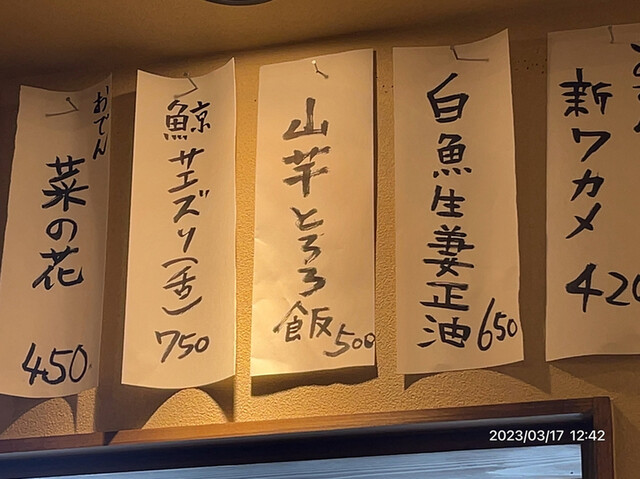 新ワカメ
420
白魚生姜正油
650
山芋とろろ飯
500
鯨サエズリ(舌)
750
おでん
菜の花
450
2023/03/17 12:42